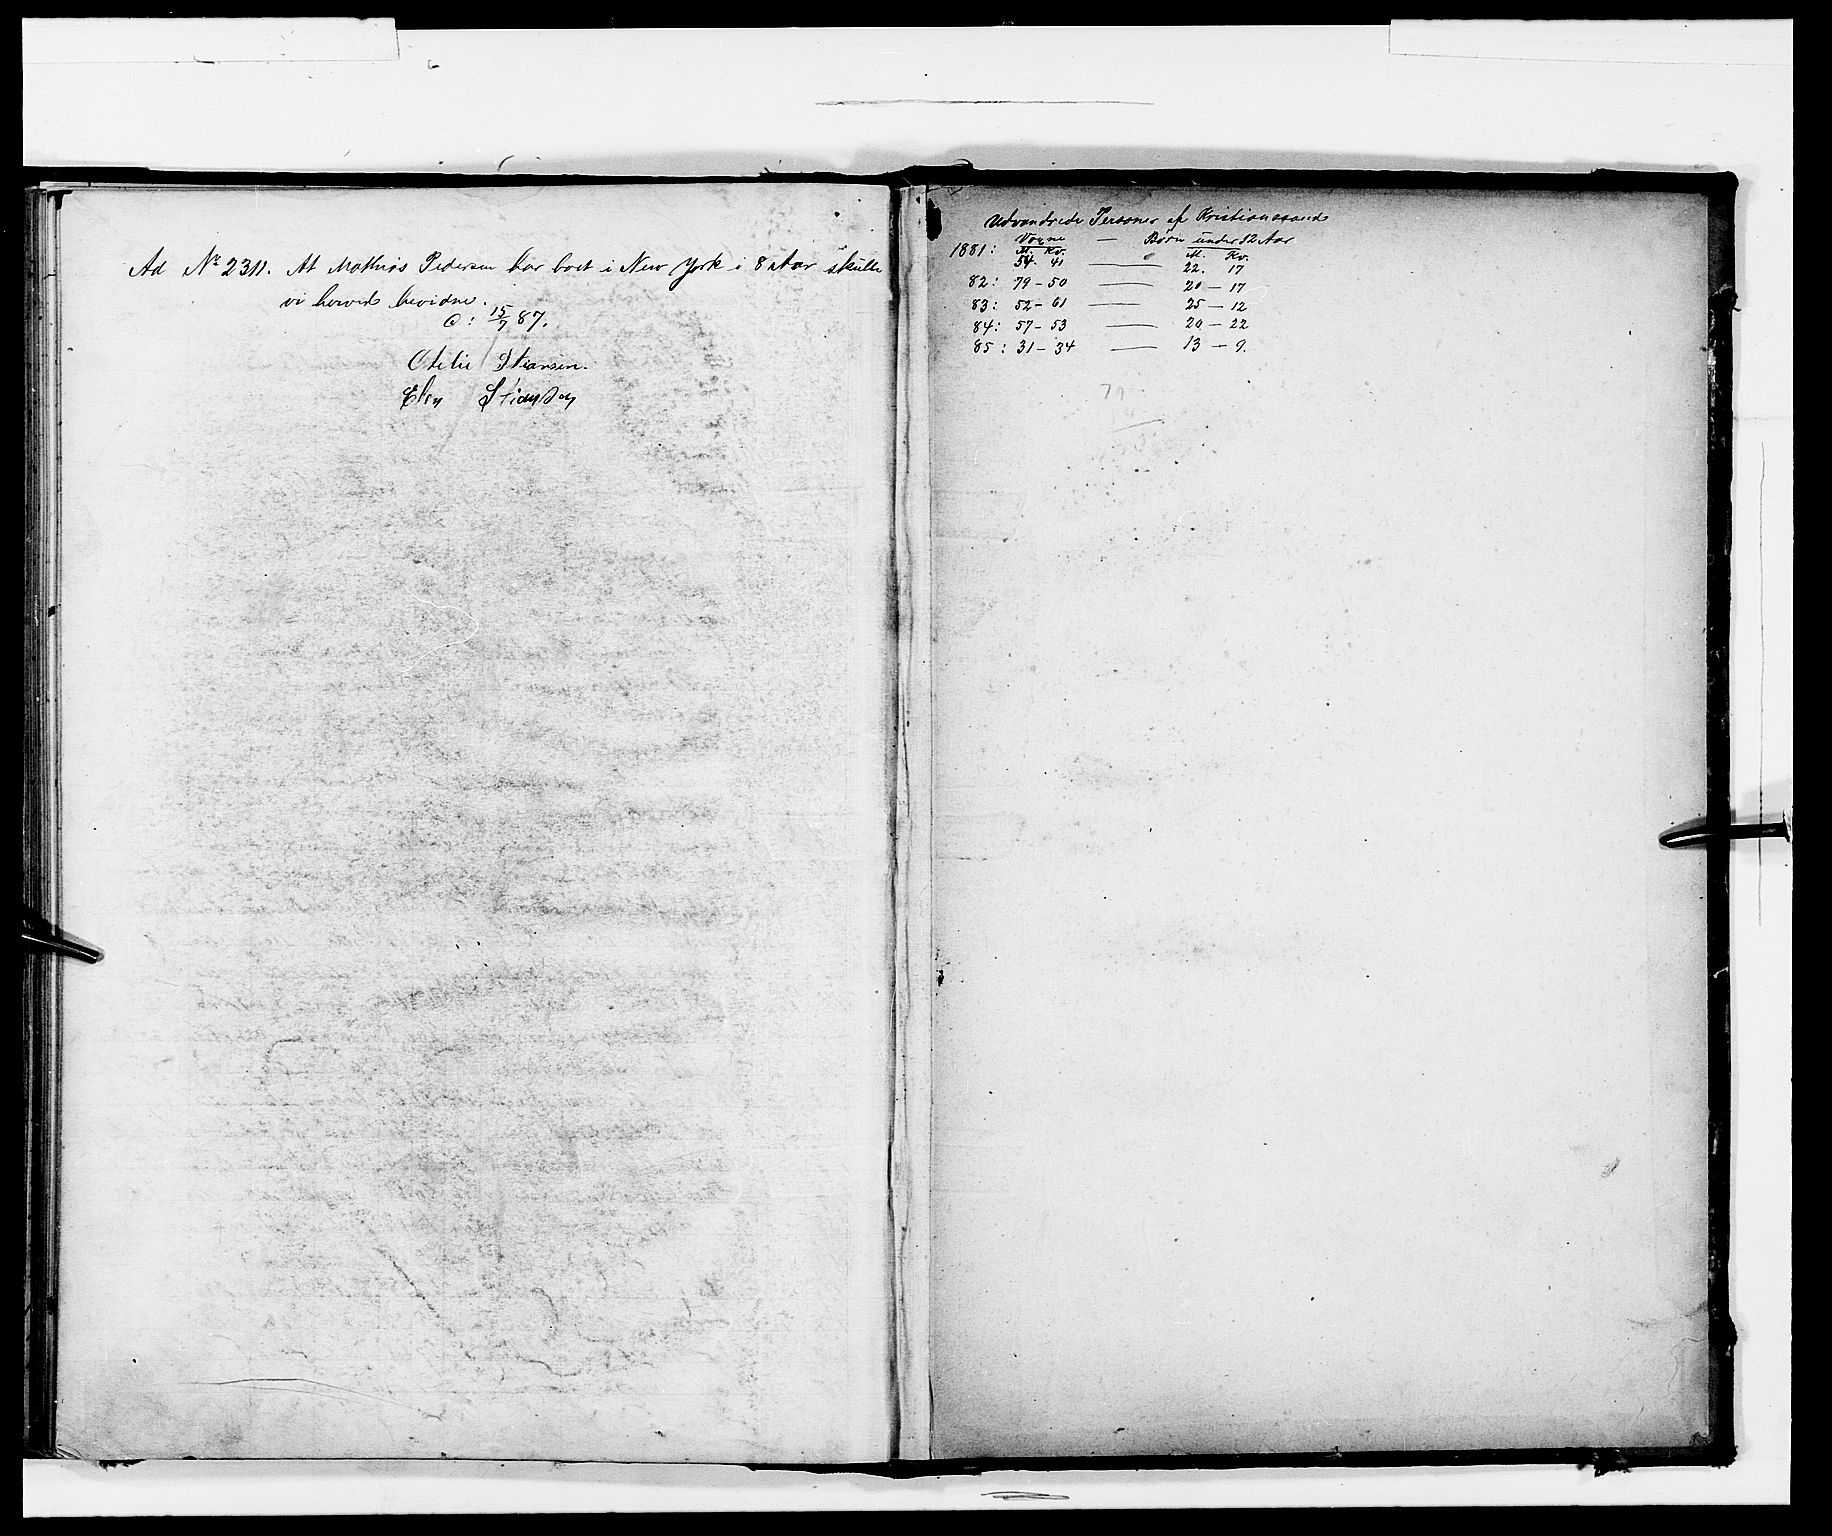 Ad No 2311. At Mathias Pedersen har boet i New York i 8 Aar skulle
vi herved bevidne.
C: 15/7 87.
Otelie Stiansen.
Elen Stiansen
Udvandrede Personer af Kristianssand
Voxne — Børn under 12 Aar
1881: M. Kv. M. Kv.
54. 41 — 22. 17
82: 79 – 50 — 20 – 17
83: 52 – 61 — 25 – 12
84: 57 – 53 — 20 – 22
85: 31 – 34 — 13 – 9.
79